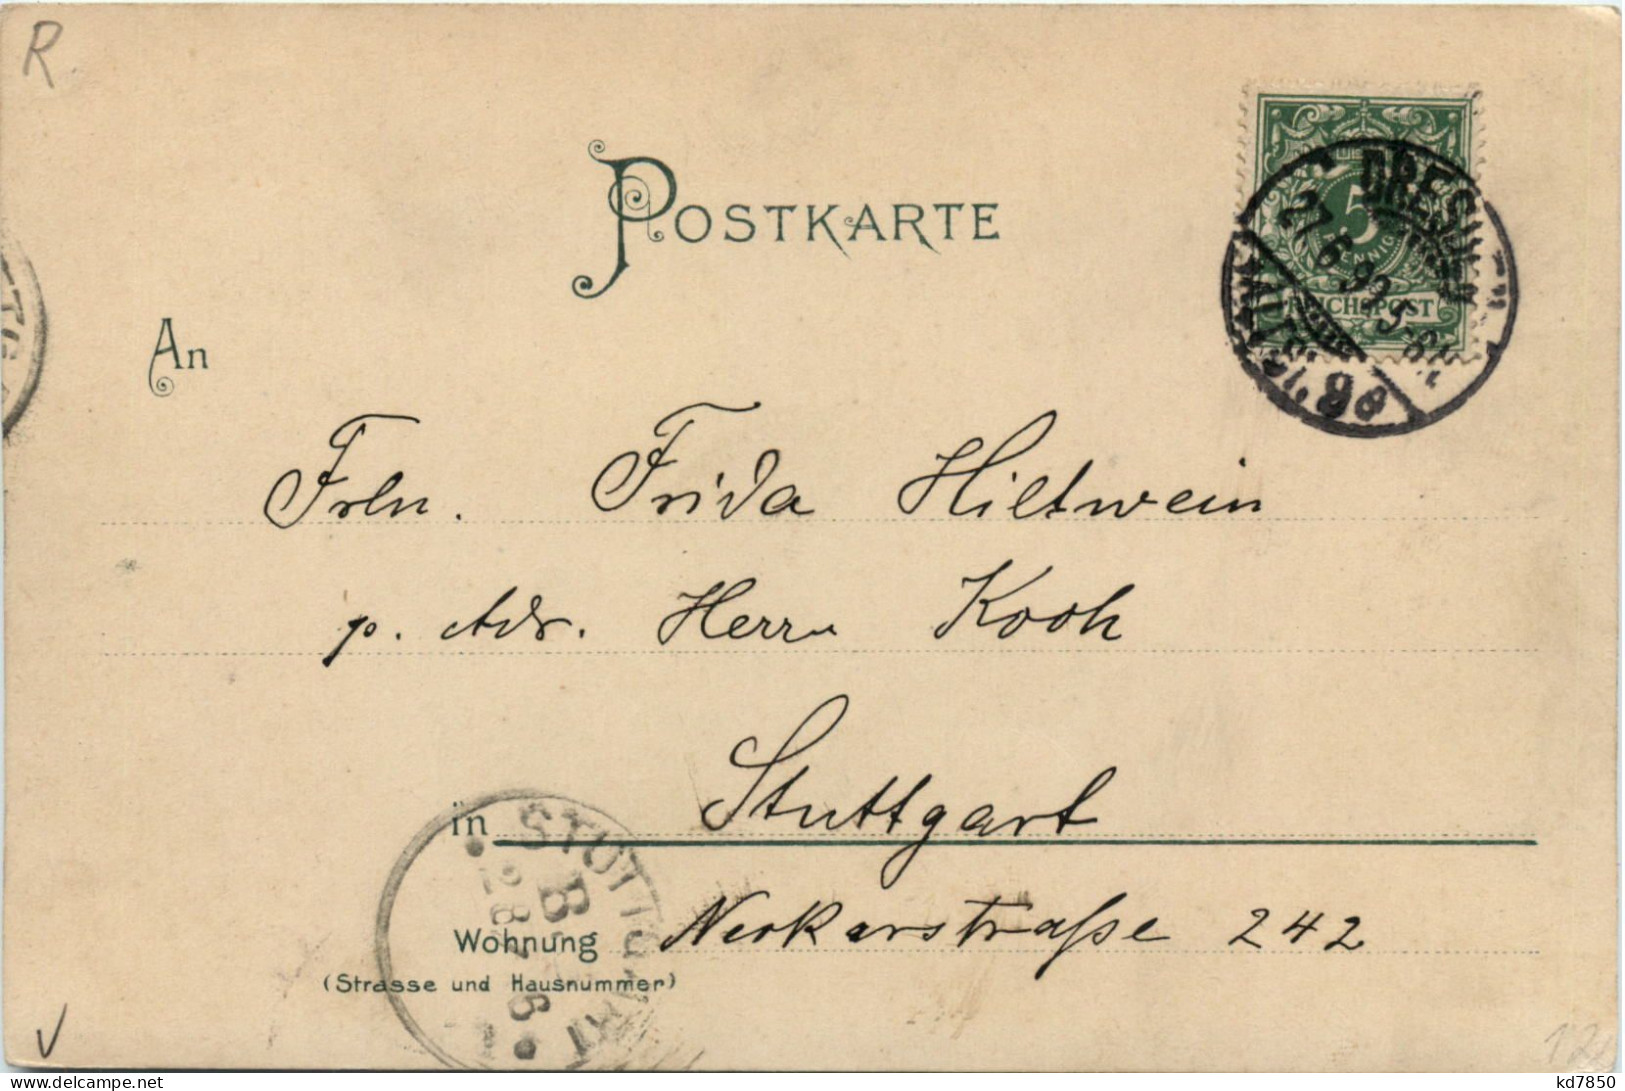 R
POSTKARTE
5
PFENNIG
REICHSPOST
DRESDEN
27 6 99 5-6N
An
Frln. Frida Hiltwein
p. Adr. Herrn Koch
in Stuttgart
STUTTGART
B
28
6
Wohnung Neckarstraße 242
(Strasse und Hausnummer)
12
kd7850